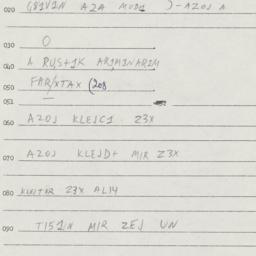 020 G81V1N AZA MUDI )-AZOJ A
030 O
040 A RUS+1K ARJMINARIM
050 FAR/XTAX (208
051
060 AZOJ KLEJC1 Z3X
070 AZOJ KLEJD+ MIR Z3X
080 KLEJTOR Z3X AL14
090 T151N MIR ZEJ UN